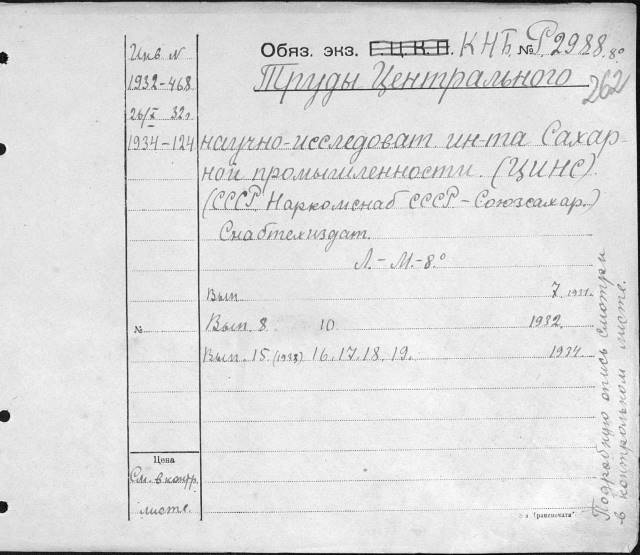 Обяз. экз. Г.Ц.К.П. КНБ № Р2988. 8°
262
Инв N
1932-468
26/X 32г.
1934-124
Труды Центрального
научно-исследоват ин-та Сахар-
ной промышленности. (ЦИНС).
(СССР. Наркомснаб СССР-Союзсахар.)
Снабтехиздат.
Л.-М.-8.°
Вып 7. 1931.
№
Вып. 8. 10. 1932.
Вып. 15. (1933) 16. 17. 18. 19. 1934.
Цена
См. в контр.
листе.
Подробную опись смотри
в контрольном листе.